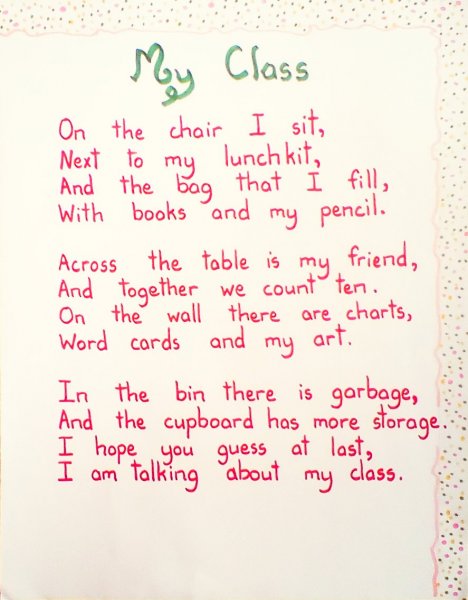 My Class
On the chair I sit,
Next to my lunchkit,
And the bag that I fill,
With books and my pencil.
Across the table is my friend,
And together we count ten.
On the wall there are charts,
Word cards and my art.
In the bin there is garbage,
And the cupboard has more storage.
I hope you guess at last,
I am talking about my class.